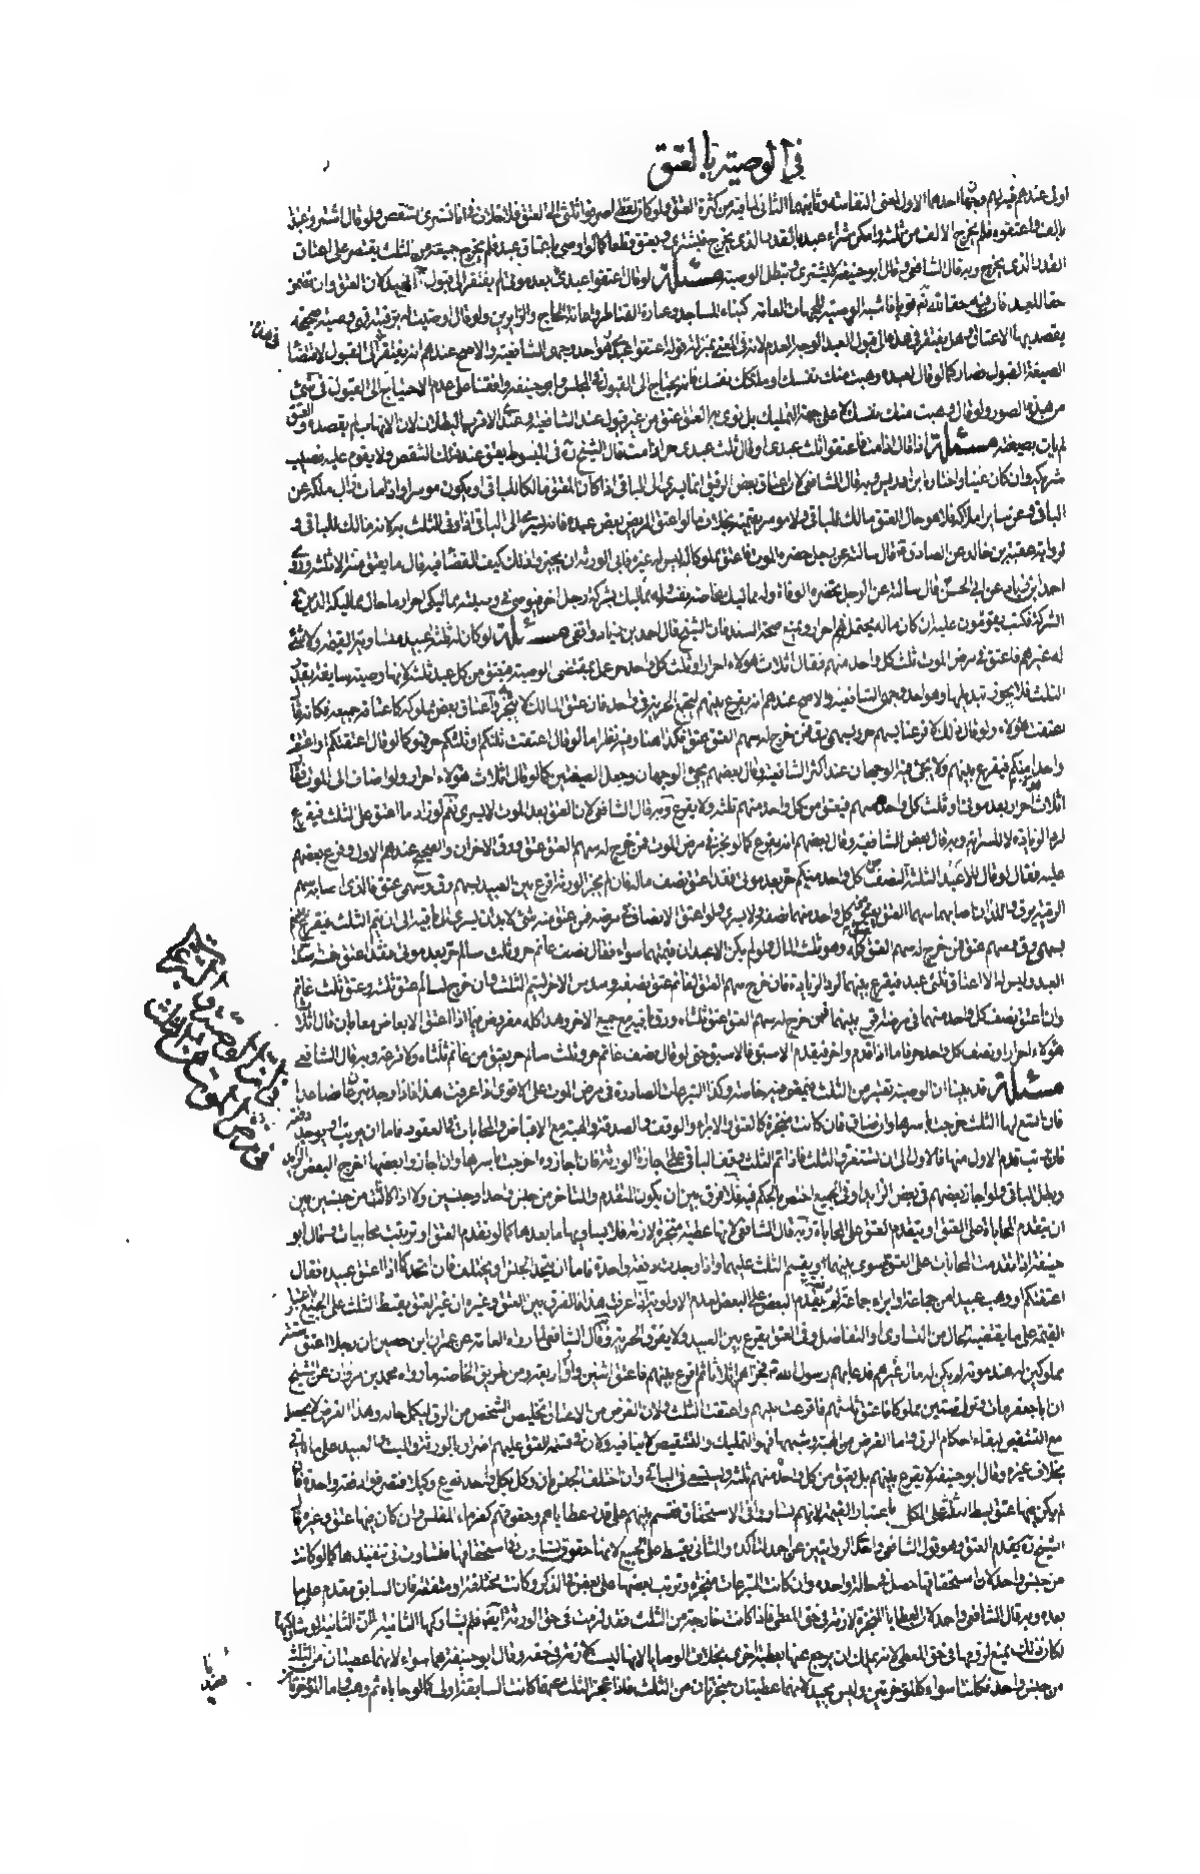 في الوصية بالعتق
اولى عندهم فيه لهم وجهان احدهما الاول لمعنى النفاسة وثانيهما الثاني لما فيه من كثرة العتق ولو كان لفظه اصرفوا ثلثي الى العتق فلا خلاف في انا نشتري شقص ولو قال اشتروا عبدا
بالف واعتقوه فلم يخرج الالف من ثلثه وامكن شراء عبد بالقدر الذي يخرج فيشترى ويعتق وقطعا كما لو اوصى باعتاق عبد فلم يخرج جميعه من الثلث يقتصر على اعتاق
القدر الذي يخرج وبه قال الشافعي وقال ابو حنيفة لا يشترى وتبطل الوصية مسئلة لو قال اعتقوا عبدي بعد موتي لم يفتقر الى قبول العبد لان العتق وان تضمن
حقا للعبد فان فيه حقا لله تع قويا فاشبه الوصية للجهات العامة كبناء المساجد وعمارة القناطر واعانة الحاج والزايرين ولو قال اوصيت له برقبته فهي وصية صحيحة
يقصد بها الاعتاق وهل يفتقر في هذه الى قبول العبد الوجه العدم لانه في المعنى بمنزلة قوله اعتقوا عبدي وهو احد وجهي الشافعية والاصح عندهم انه يفتقر الى القبول لاقتضاء
الصيغة القبول فصار كما لو قال لعبده وهبت منك نفسك او ملكتك نفسك فانه يحتاج الى القبول في المجلس وابو حنيفة وافقنا على عدم الاحتياج الى القبول في شيء
من هذه الصور ولو قال وهبت منك نفسك لا على جهة التمليك بل نوى به العتق عتق من غير قبول عند الشافعية وعندنا الاقرب البطلان لان الاتهاب لم يقصده و العتق
لم يات بصيغته مسئلة اذا قال اذا مت فاعتقوا ثلث عبدي او قال ثلث عبدي حر اذا مت قال الشيخ ره في المبسوط يعتق عنه ذلك الشقص ولا يقوم عليه نصيب
شريكه وان كان غنيا واختاره ابن ادريس وبه قال الشافعي لان اعتاق بعض الرقيق انما يسري الى الباقي اذا كان المعتق مالكا للباقي ويكون موسرا واذا مات زال ملكه عن
الباقي وعن ساير املاكه فلا هو حال العتق مالك للباقي ولا موسر بقيمته بخلاف ما لو اعتق المريض بعض عبده فانه يسري الى الباقي اذا وفى الثلث به لانه مالك للباقي و
لرواية عقبة بن خالد عن الصادق ع قال سالته عن رجل حضره الموت فاعتق مملوكا له ليس له غيره فابى الورثة ان يجيزوا ذلك كيف القضاء فيه قال ما يعتق منه الا ثلثه وروى
احمد بن زياد عن ابي الحسن ع قال سالته عن الرجل تحضره الوفاة وله مماليك لخاصة نفسه وله مماليك بشركة رجل اخر فيوصي في وصيته مماليكي احرار ما حال مماليكه الذين في
الشركة فكتب يقومون عليه ان كان ماله يحتمل فهم احرار ونمنع صحة السند فان الشيخ قال احمد بن زياد واقفي مسئلة لو كان له ثلثة اعبد متساوية القيمة ولا شيء
له غيرهم فاعتق في مرض الموت ثلث كل واحد منهم فقال اثلاث هؤلاء احرار او ثلث كل واحد حر عمل بمقتضى الوصية فيعتق من كل عبد ثلثه لانها وصية سايغة بقدر
الثلث فلا يجوز تبديلها وهو احد وجهي الشافعية والاصح عندهم انه يقرع بينهم لتجتمع الحرية في واحد فان عتق المالك لا يتجزى واعتاق بعض مملوكه كاعتاق جميعه فكانه قال
اعتقت هؤلاء ولو قال ذلك لاقرعنا بسهم حرية وسهمي رق فمن خرج له سهم العتق عتق فكذا هنا وفيه نظر اما لو قال اعتقت ثلثكم او ثلثكم حر فهو كما لو قال اعتقتكم او اعتقت
واحدا منكم فيقرع بينهم ولا يجيء فيه الوجهان عند اكثر الشافعية وقال بعضهم يجيء الوجهان وجعل الصيغتين كما لو قال اثلاث هؤلاء احرار ولو اضاف الى الموت فقال
اثلاث هؤلاء احرار بعد موتي او ثلث كل واحد منهم فيعتق من كل واحد منهم ثلثه ولا يقرع وبه قال الشافعي لان العتق بعد الموت لا يسري نعم لو زاد ما اعتق على الثلث فيقرع
لرد الزيادة لا للسراية وبه قال بعض الشافعية وقال بعضهم انه يقرع كما لو نجز في مرض الموت فمن خرج له سهم العتق عتق ورق الاخران والصحيح عندهم الاول وفرع بعضهم
عليه فقال لو قال للاعبد الثلثة النصف من كل واحد منكم حر بعد موتي فقد اعتق نصف ماله فان لم يجز الورثة اقرع بين العبيد بسهم رق وسهمي عتق فالذي اصابه سهم
الرق يرق واللذان اصابهما سهما العتق يعتق من كل واحد منهما نصفه ولا يسري ولو اعتق الانصاف في مرضه فمن عتق منه شيء لا بد ان يسري الى باقيه الى ان يتم الثلث فيقرع بينهم
بسهمي رق وسهم عتق فمن خرج له سهم العتق عتق كله وهو ثلث المال ولو لم يكن الا عبدان قيمتهما سواء فقال نصف غانم حر وثلث سالم حر بعد موتي فقد اعتق خمسة اسداس
العبد وليس له الا اعتاق ثلثي عبد فيقرع بينهما لرد الزيادة فان خرج سهم العتق لغانم عتق نصفه وسدس الاخر ليتم الثلث وان خرج لسالم عتق ثلثه وعتق ثلث غانم
وان اعتق نصف كل واحد منهما في مرضه اقرع بينهما فمن خرج له سهم العتق عتق ثلثاه ورق باقيه مع جميع الاخر وهذا كله مفروض فيما اذا اعتق الابعاض معا بان قال اثلاث
هؤلاء احرار او نصف كل واحد حر فاما اذا قدم واخر فيقدم الاسبق فالاسبق حتى لو قال نصف غانم حر وثلث سالم حر يعتق من غانم ثلثاه ولا قرعة وبه قال الشافعي
مسئلة قد بينا ان الوصية تعتبر من الثلث فيتقوم منه خاصة وكذا التبرعات الصادرة في مرض الموت على الاقوى اذا عرفت هذا فاذا وجد تبرعان فصاعدا
فان اتسع لها الثلث خرجت باسرها وان ضاق فان كانت منجزة كالعتق والابراء والوقف والصدقة والهبة مع الاقباض والمحابات في العقود فاما ان يرتب او يوجد دفعة
فان رتب قدم الاول منها فالاول الى ان يستغرق الثلث فاذا تم الثلث وقف الباقي على اجازة الورثة فان اجازوه اخرجت باسرها وان اجازوا بعضها اخرج البعض الزايد
وبطل الباقي ولو اجاز بعضهم في بعض الزايد او في الجميع اختص الحكم فيه فلا فرق بين ان يكون المتقدم والمتاخر من جنس واحد او جنسين ولا اذا كانت من جنسين بين
ان يتقدم المحاباة على العتق او يتقدم العتق على المحاباة وبه قال الشافعي لانها عطية منجزة لازمة فلا يساويها ما بعدها كما لو تقدم العتق او ترتبت محابيات وقال ابو
حنيفة اذا تقدمت المحابات على العتق سوي بينهما ويقسم الثلث عليهما واذا وجدت دفعة واحدة فاما ان يتحد الجنس او يختلف فان اتحد كما اذا اعتق عبيده فقال
اعتقتكم او وهب عبيدا من جماعة او ابراء جماعة لم يتقدم البعض على البعض لعدم الاولوية اذا عرفت هذا فالفرق بين العتق وغيره ان غير العتق يقسط الثلث على الجميع باعتبار
القيمة على ما يقتضيه الحال من التساوي او التفاضل وفي العتق يقرع بين العبيد ولا يفرق الحرية وبه قال الشافعي لما رواه العامة عن عمران بن حصين ان رجلا اعتق ستة
مملوكين له عند موته لم يكن له مال غيرهم فدعاهم رسول الله ص فجزاهم اثلاثا ثم اقرع بينهم فاعتق اثنين وارق اربعة ومن طريق الخاصة ما رواه محمد بن مروان عن الشيخ
ان ابا جعفر ع مات وترك ستين مملوكا فاعتق ثلثهم فاقرعت بينهم واعتقت الثلث ولان الغرض من الاعتاق تخليص الشخص من الرق ليكمل حاله وهذا الغرض لا يحصل
مع التشقيص لبقاء احكام الرق واما الغرض من الهبة وشبهها فهو التمليك والتشقيص لا ينافيه وكان في قسمة العتق عليهم اضرار بالورثة والميت والعبيد على ما ياتي
بخلاف غيره وقال ابو حنيفة لا يقرع بينهم بل يعتق من كل واحد منهم ثلثه ويستسعى في الباقي وان اختلف الجنس بان وكل بكل واحد نوع وكيلا فتصرفوا دفعة واحدة فان
لم يكن فيها عتق بسط الثلث على الكل باعتبار القيمة لانهم تساووا في الاستحقاق فقسم بينهم على قدر عطاياهم وحقوقهم كغرماء المفلس وان كان فيها عتق وغيره قال
الشيخ ره يقدم العتق وهو قول الشافعي واحمد في احدى الروايتين عن احمد لتاكده والثاني يقسط على الجميع لانها حقوق تساوت في استحقاقها فتساوت في تنفيذها كما لو كانت
من جنس واحد لان استحقاقها حصل في حالة واحدة وان كانت التبرعات منجزة وترتبت بعضها على بعض في الذكر وكانت مختلفة او متفقة فان السابق مقدم على ما
بعده وبه قال الشافعي واحمد لان العطايا المنجزة لازمة في حق المعطي فاذا كانت خارجة من الثلث فقد لزمت في حق الورثة ايضا فلم يشاركها الثانية لان الثانية لو شاركتها
لكان ذلك يمنع لزومها في حق المعطي لانه يملك ان يرجع عنها بعطية اخرى بخلاف الوصايا لانها ليست لازمة في حقه وقال ابو حنيفة هما سواء لانهما عطيتان من الثلث
من جنس واحد فكانتا سواء كالمؤخرتين وليس بجيد لانهما عطيتان منجزتان من الثلث فاذا عجز الثلث عنهما كانت السابقة اولى كما لو حاباه ثم وهب واما المؤخرة فان
في ان الوصية و التبرعات في مرض الموت من الثلث